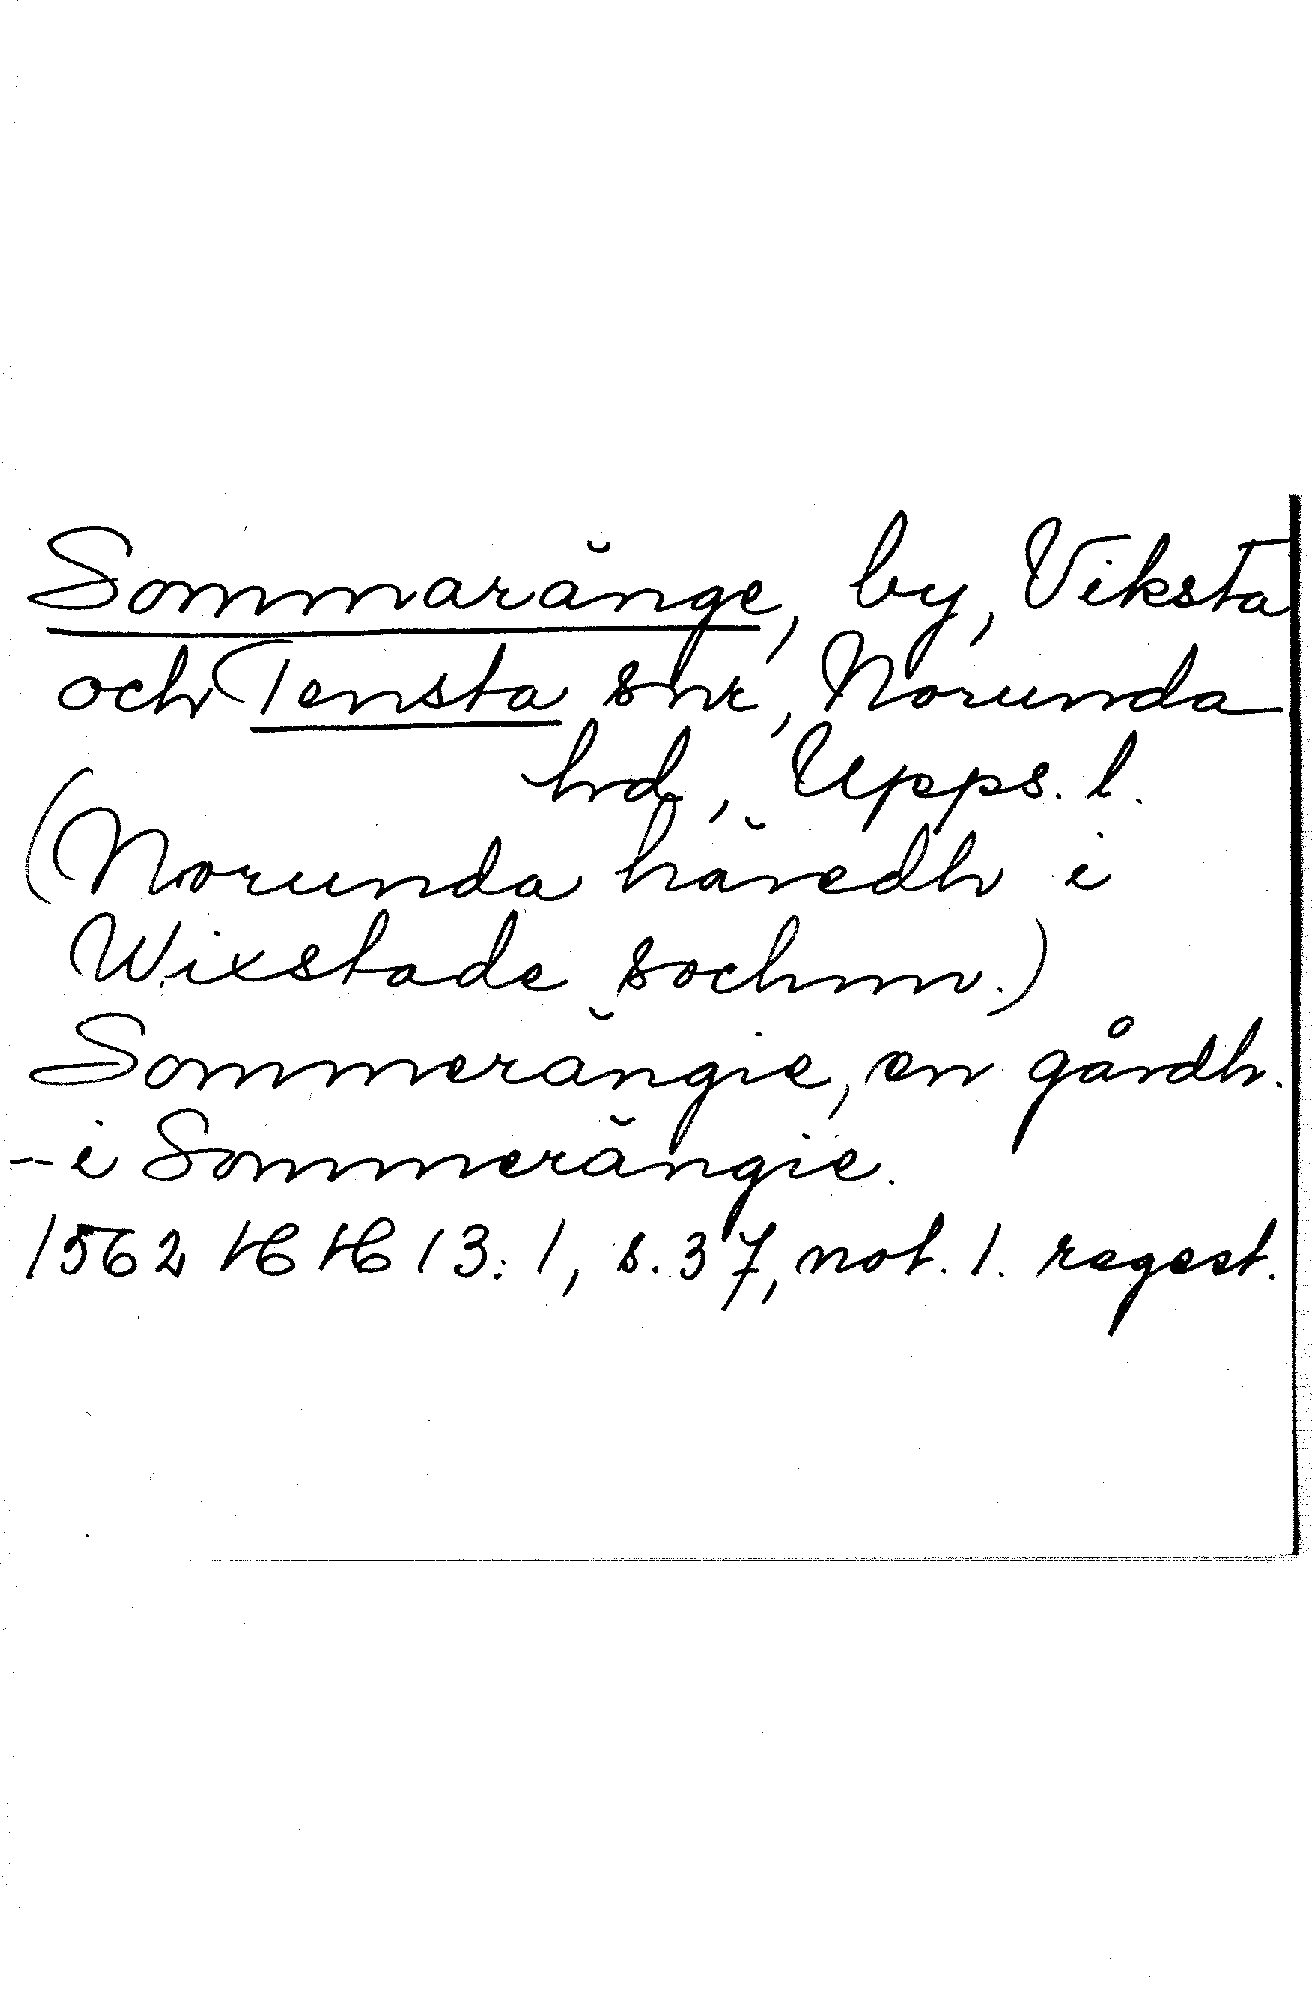 Sommaränge, by, Viksta
och Tensta snr, Norunda
hd, Upps. l.
(Norunda häredh i
Wixstade sochnn.)
Sommerängie, en gårdh.
-- i Sommerängie.
1562 HH 13:1, s. 37, not. 1. regest.